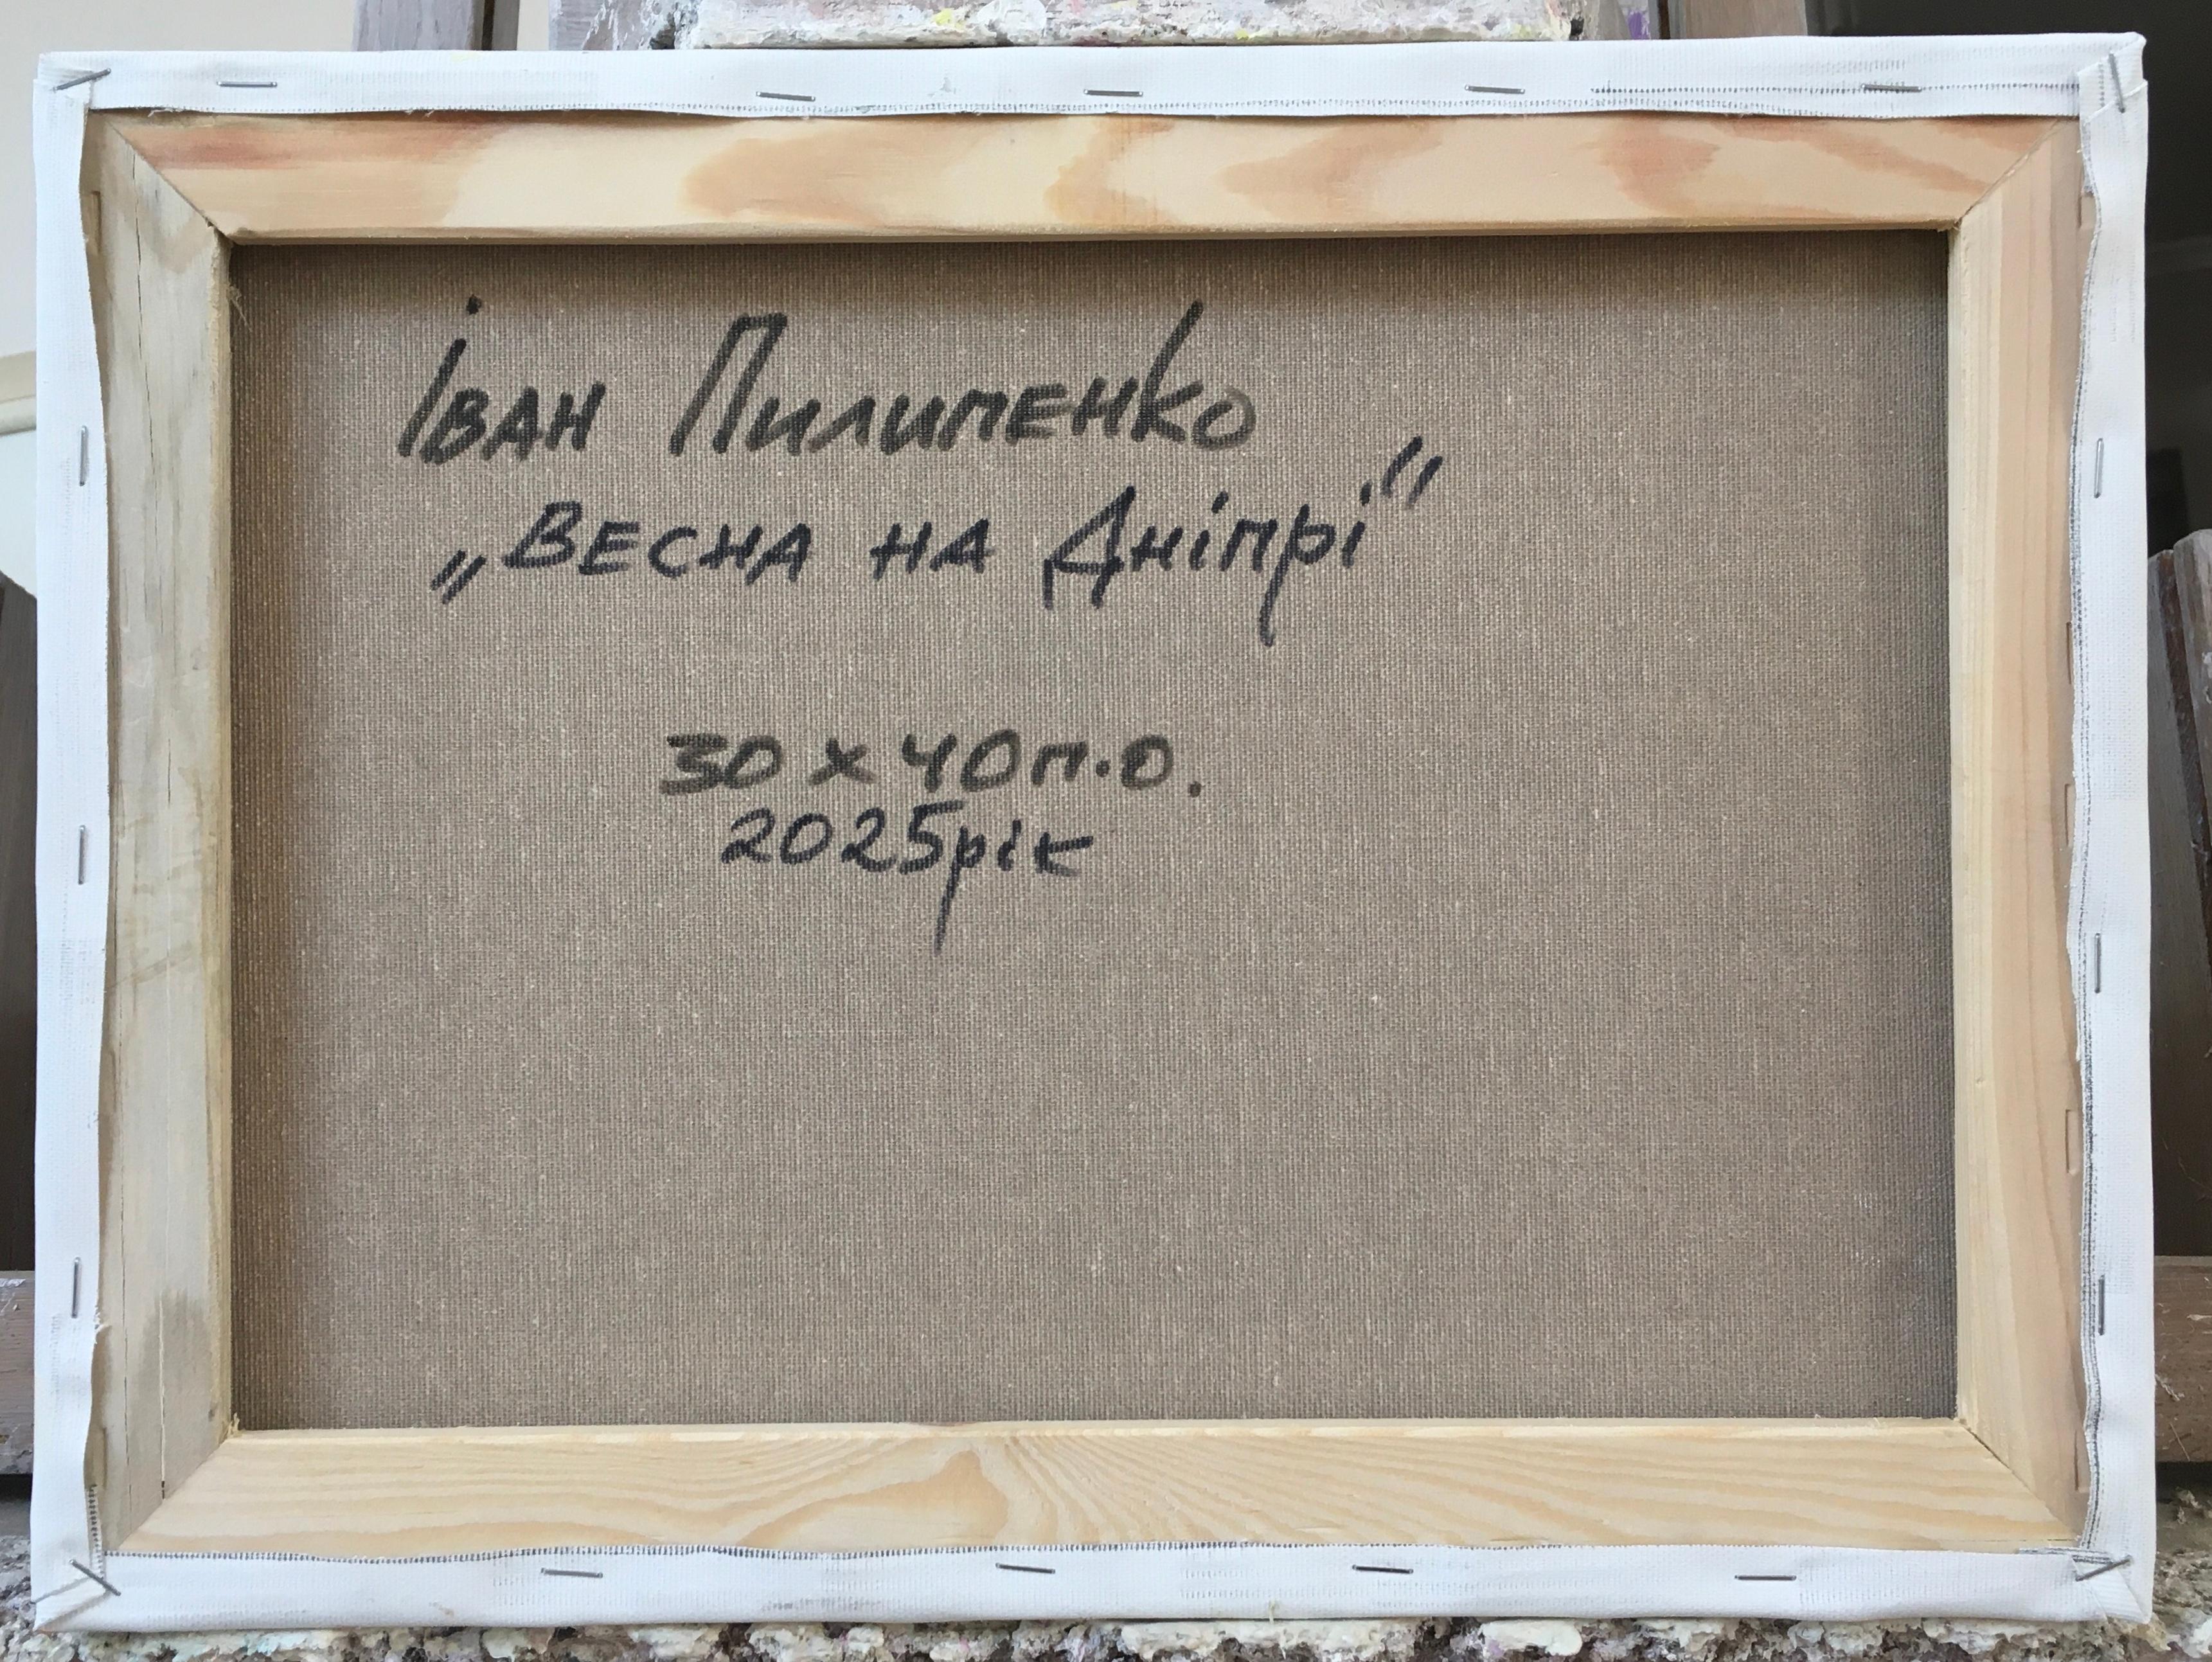 Іван Пилипенко
„Весна на Дніпрі"
30 х 40 п.о.
2025рік